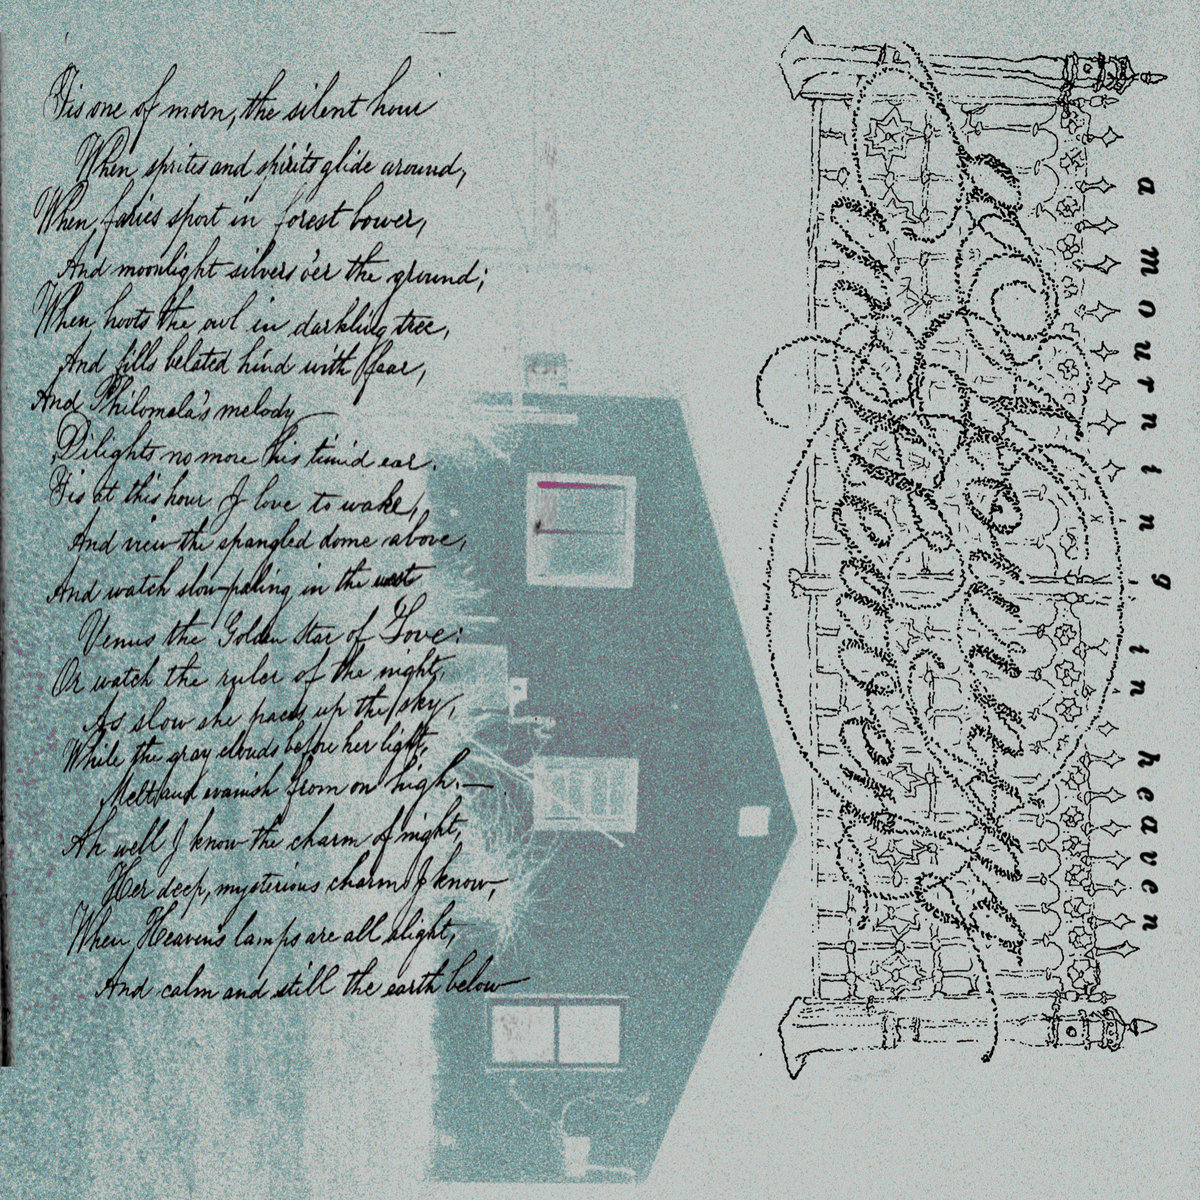 'Tis one of morn, the silent hour
When sprites and spirits glide around,
When fairies sport in forest bower,
And moonlight silvers o'er the ground;
When hoots the owl in darkling tree,
And fills belated hind with fear,
And Philomela's melody
Delights no more his timid ear.
'Tis at this hour I love to wake,
And view the spangled dome above,
And watch slow paling in the west
Venus the Golden Star of Love:
Or watch the ruler of the night,
As slow she paces up the sky,
While the gray clouds before her light,
Melt and evanish from on high.—
Ah well I know the charm of night,
Her deep, mysterious charms I know,
When Heavens lamps are all alight,
And calm and still the earth below
a mourning in heaven